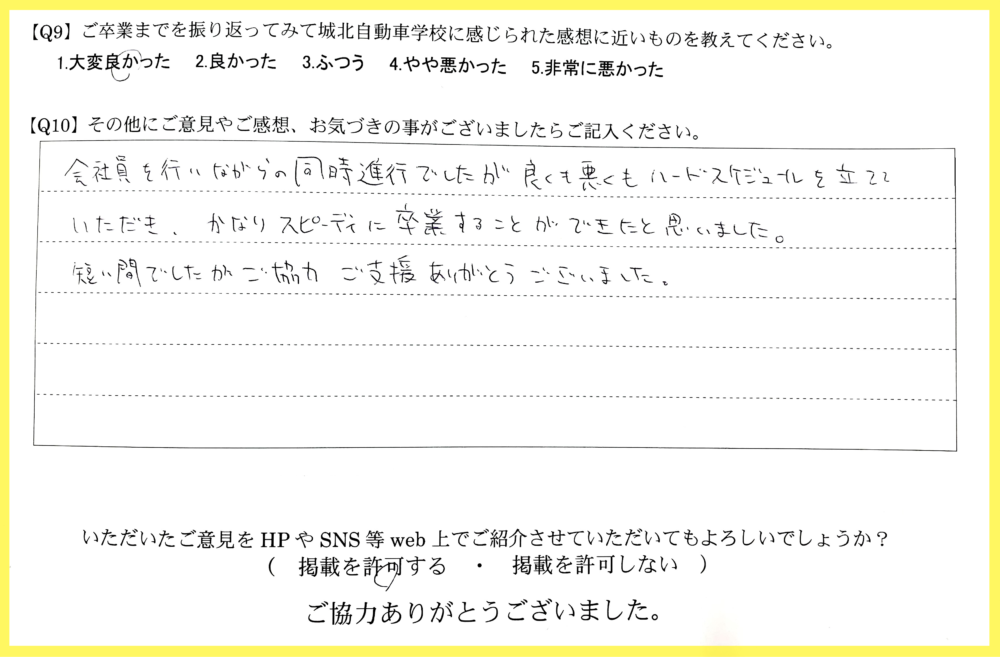 【Q9】ご卒業までを振り返ってみて城北自動車学校に感じられた感想に近いものを教えてください。
1.大変良かった 2.良かった 3.ふつう 4.やや悪かった 5.非常に悪かった
【Q10】その他にご意見やご感想、お気づきの事がございましたらご記入ください。
会社員を行いながらの同時進行でしたが良くも悪くもハードスケジュールを立てて
いただき、かなりスピーディに卒業することができたと思いました。
短い間でしたがご協力 ご支援ありがとうございました。
いただいたご意見をHPやSNS等web上でご紹介させていただいてもよろしいでしょうか？
（ 掲載を許可する ・ 掲載を許可しない ）
ご協力ありがとうございました。